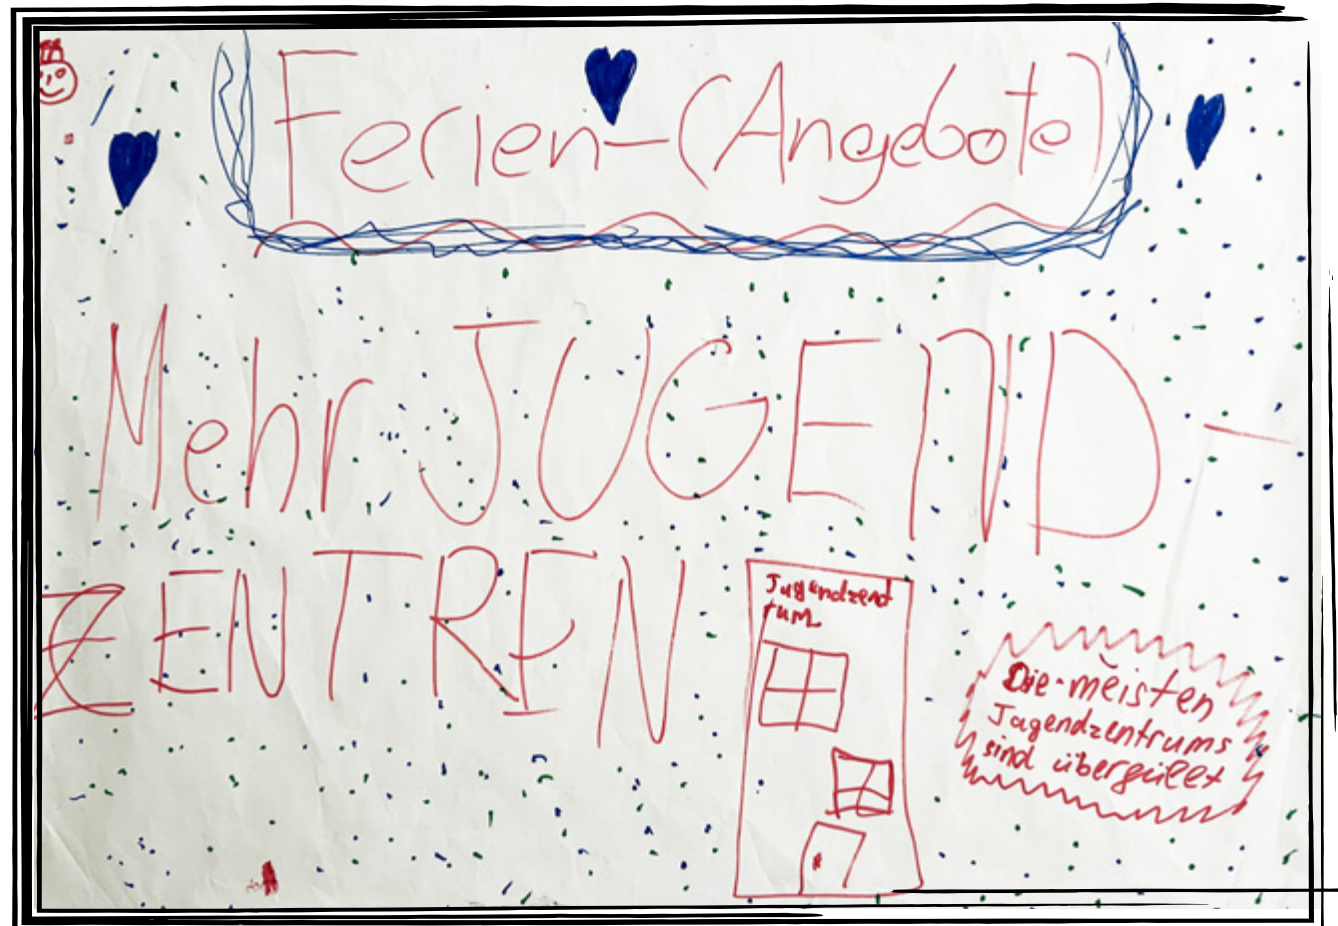 Ferien-(Angebote)
Mehr JUGEND-
ZENTREN
Jugendzent
rum
Die meisten
Jugendzentrums
sind übergüllt